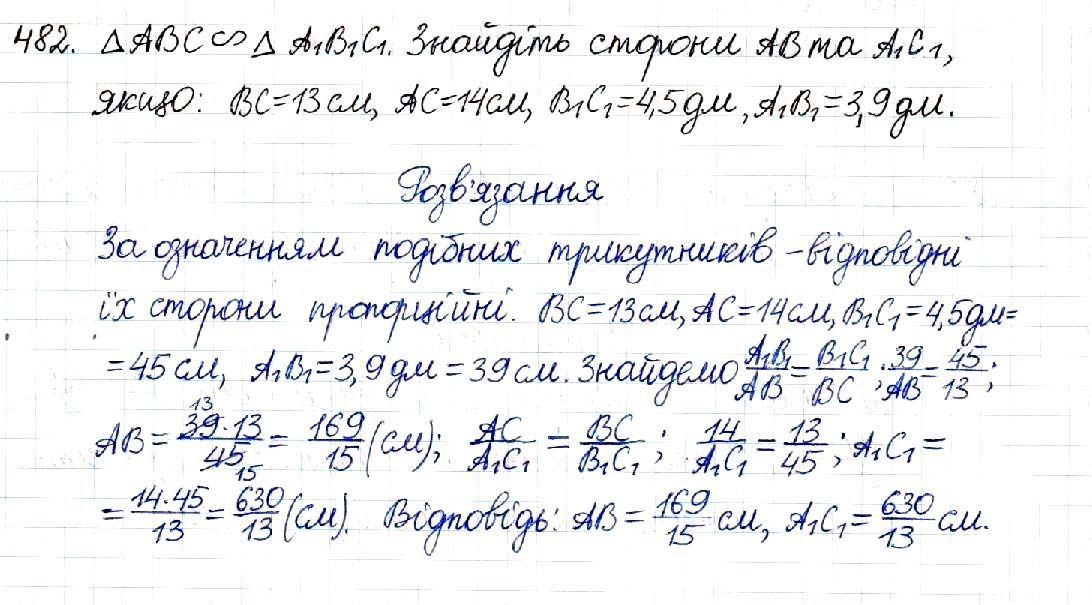 482. △ABC ∽ △A₁B₁C₁. Знайдіть сторони AB та A₁C₁,
якщо: BC=13см, AC=14см, B₁C₁=4,5дм, A₁B₁=3,9дм.
Розв'язання
За означенням подібних трикутників – відповідні
їх сторони пропорційні. BC=13см, AC=14см, B₁C₁=4,5дм=
=45см, A₁B₁=3,9дм=39см. Знайдемо A₁B₁/AB = B₁C₁/BC ; 39/AB = 45/13 ;
AB = 39¹³·13/45₁₅ = 169/15 (см); AC/A₁C₁ = BC/B₁C₁ ; 14/A₁C₁ = 13/45 ; A₁C₁ =
= 14·45/13 = 630/13 (см). Відповідь: AB = 169/15 см, A₁C₁ = 630/13 см.